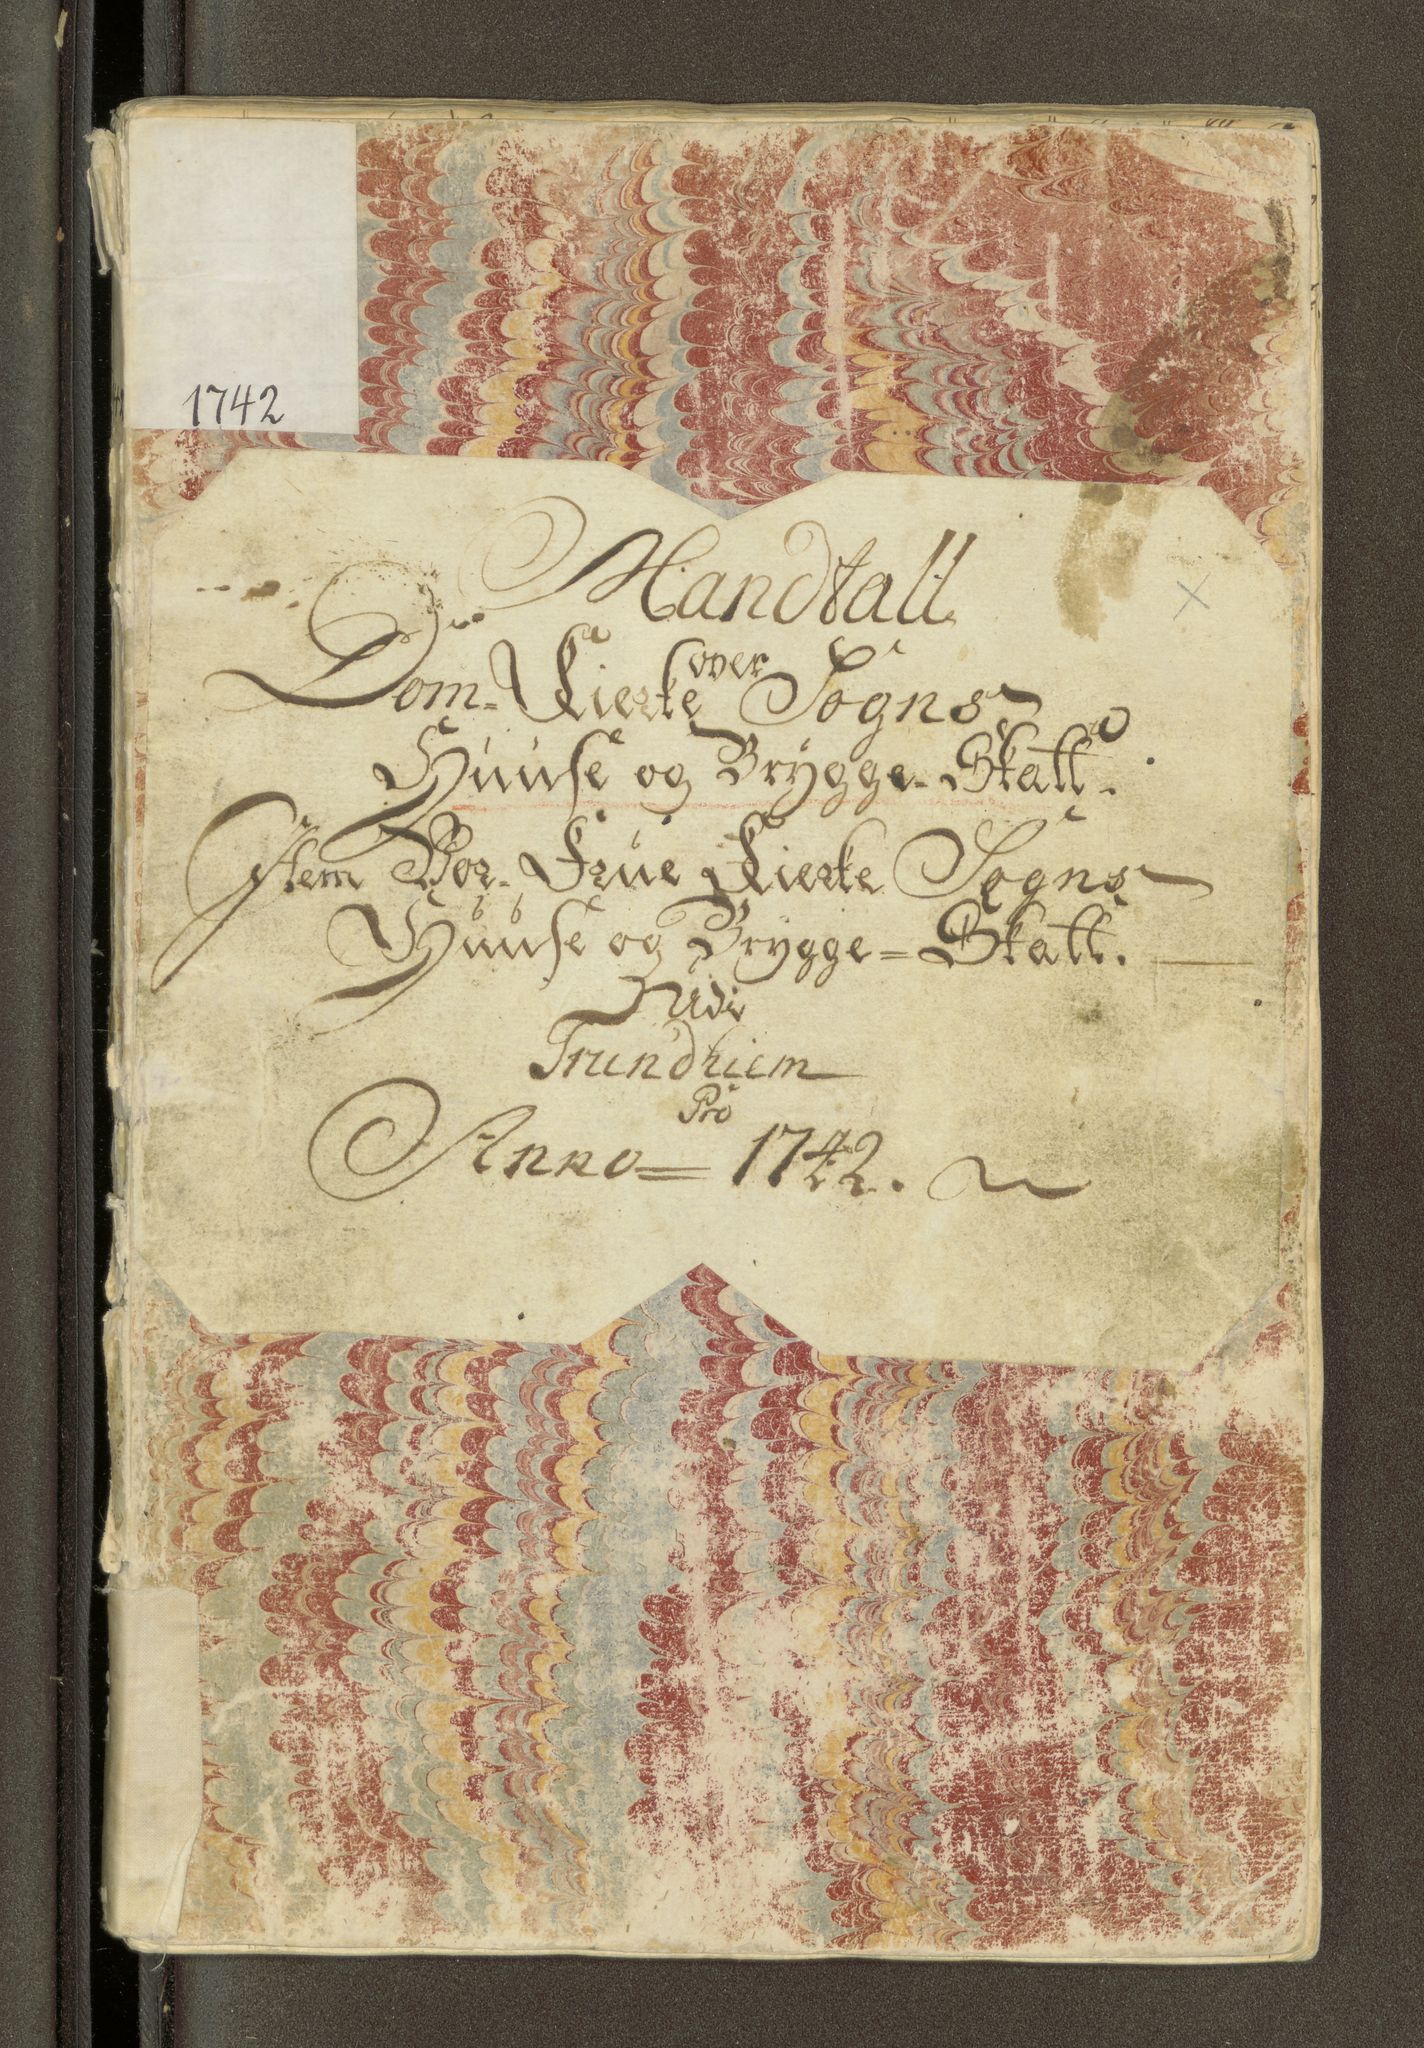 1742
Mandtall
over
Dom-Kierke Sogns
Huuse og Brygge-Skatt.
Item Vor-Frue Kierke Sogns
Huuse og Brygge=Skatt.
Udi
Trundhiem
Pro
Anno= 1742.